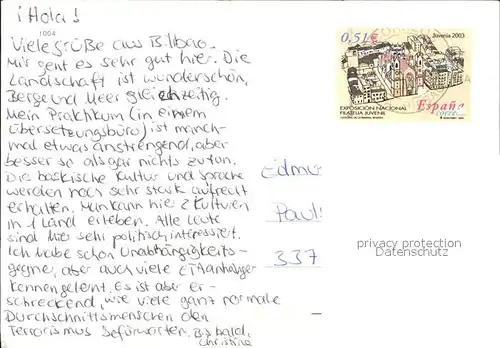 ¡Hola!
1004
Viele grüße aus Bilbao.
Mir geht es sehr gut hier. Die
Landschaft ist wunderschön,
Berge und Meer gleichzeitig.
Mein Praktikum (in einem
Übersetzungsbüro) ist manch-
mal etwas anstrengend, aber
besser so als gar nichts zu tun.
Die baskische Kultur und Sprache
werden noch sehr stark aufrecht
erhalten. Man kann hier 2 Kulturen
in 1 Land erleben. Alle Leute
sind hier sehr politisch interessiert.
Ich habe schon Unabhängigkeits-
gegner, aber auch viele ETAanhänger
kennengelernt. Es ist aber er-
schreckend, wie viele ganz normale
Durchschnittsmenschen den
Terrorismus befürworten. Bis bald,
Christine
0,51€
Juvenia 2003
EXPOSICIÓN NACIONAL
FILATELIA JUVENIL
España
correos
Edmu
Paul
337
privacy protection
Datenschutz